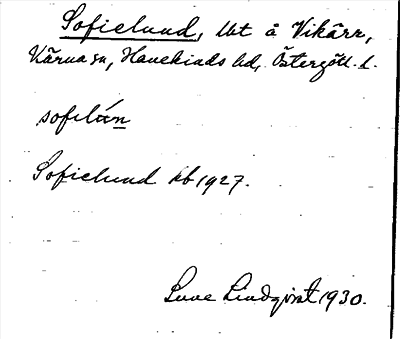 Sofielund, lht å Vikärr,
Kärna sn, Hanekinds hd, Östergötl. l.
sofilún
Sofielund kb 1927.
Sune Lindqvist 1930.